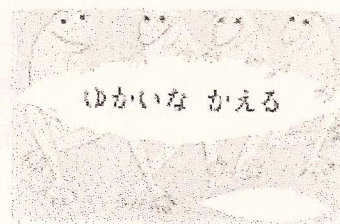 ゆかいな かえる